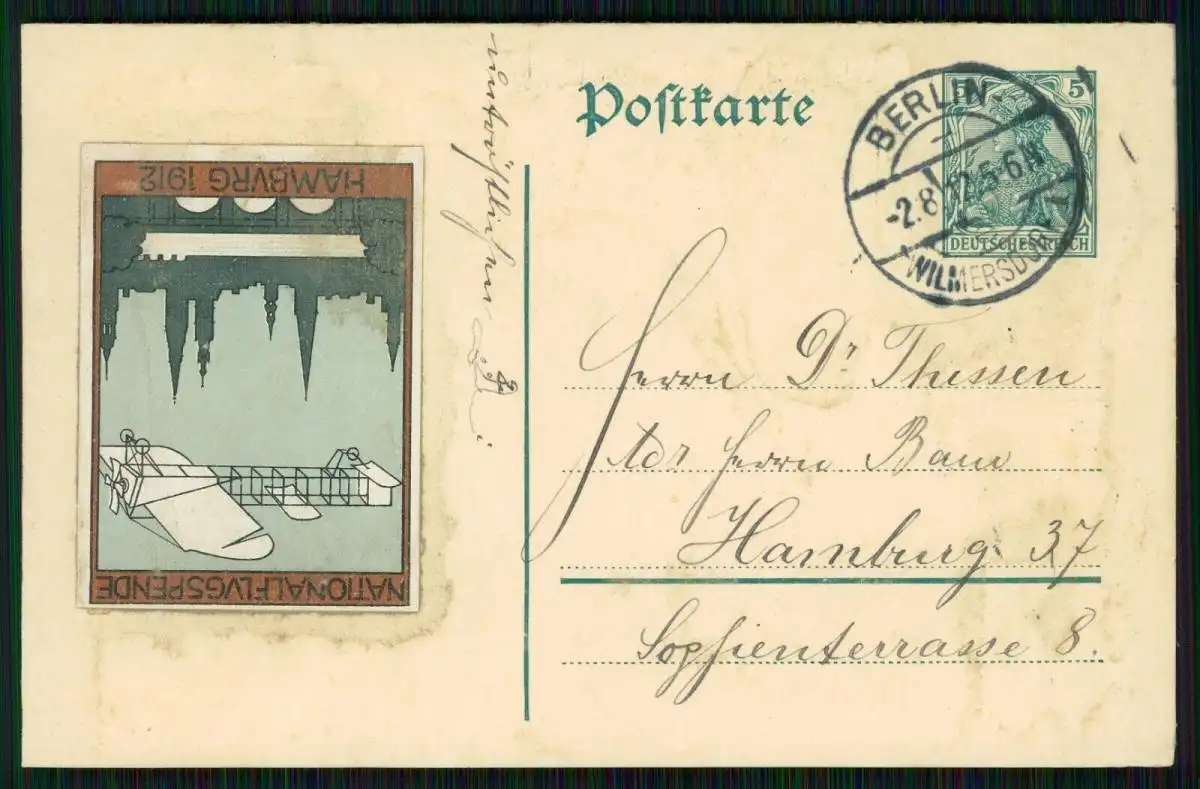 Postkarte
5 5
DEUTSCHES REICH
BERLIN-
-2.8.12.5-6N
*WILMERSDORF 1
NATIONALFLVGSPENDE
HAMBVRG 1912
Herrn Dr Thissen
Adr Herrn Baur
Hamburg 37
Sophienterrasse 8.